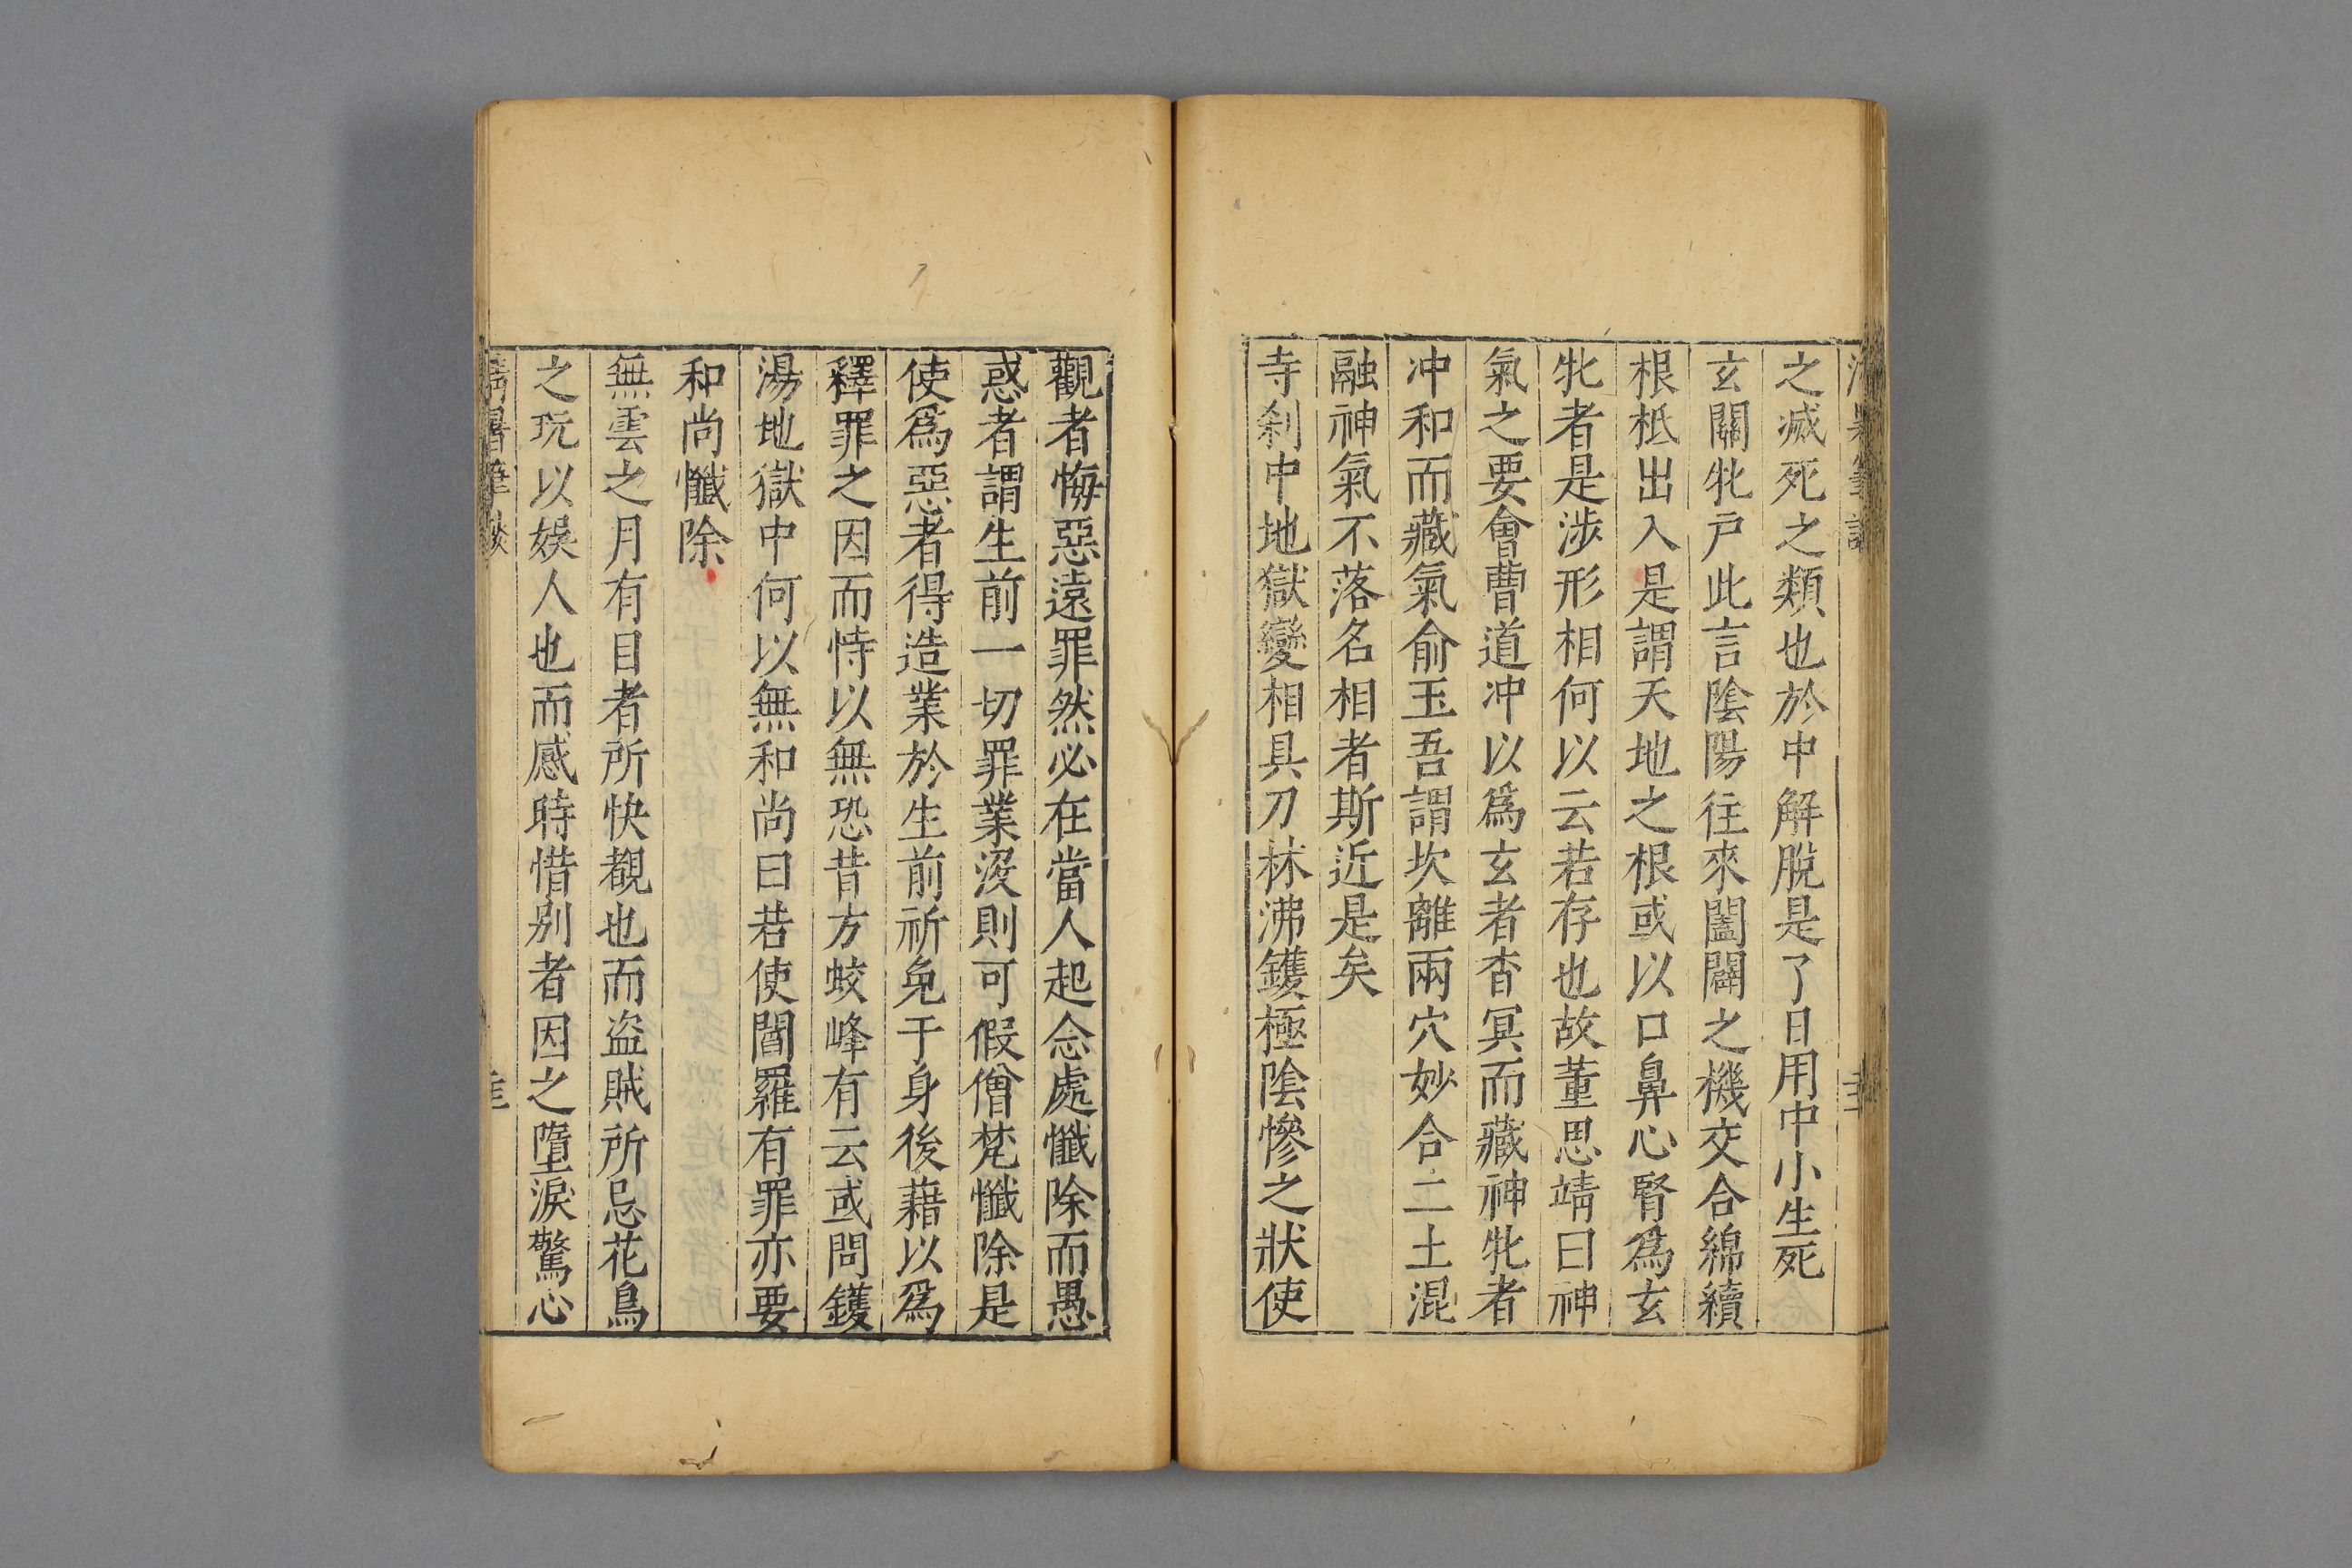 之滅死之類也於中解脫是了日用中小生死
玄關牝戶此言陰陽往來闔闢之機交合綿續
根柢出入是謂天地之根或以口鼻心腎爲玄
牝者是涉形相何以云若存也故董思靖曰神
氣之要會曹道冲以爲玄者杳冥而藏神牝者
冲和而藏氣俞玉吾謂坎離兩穴妙合二土混
融神氣不落名相者斯近是矣
寺刹中地獄變相具刀林沸鑊極陰慘之狀使
觀者悔惡遠罪然必在當人起念處懺除而愚
惑者謂生前一切罪業沒則可假僧梵懺除是
使爲惡者得造業於生前祈免于身後藉以爲
釋罪之因而恃以無恐昔方蛟峰有云或問鑊
湯地獄中何以無和尚曰若使閻羅有罪亦要
和尚懺除
無雲之月有目者所快覩也而盜賊所忌花鳥
之玩以娛人也而感時惜別者因之墮淚驚心